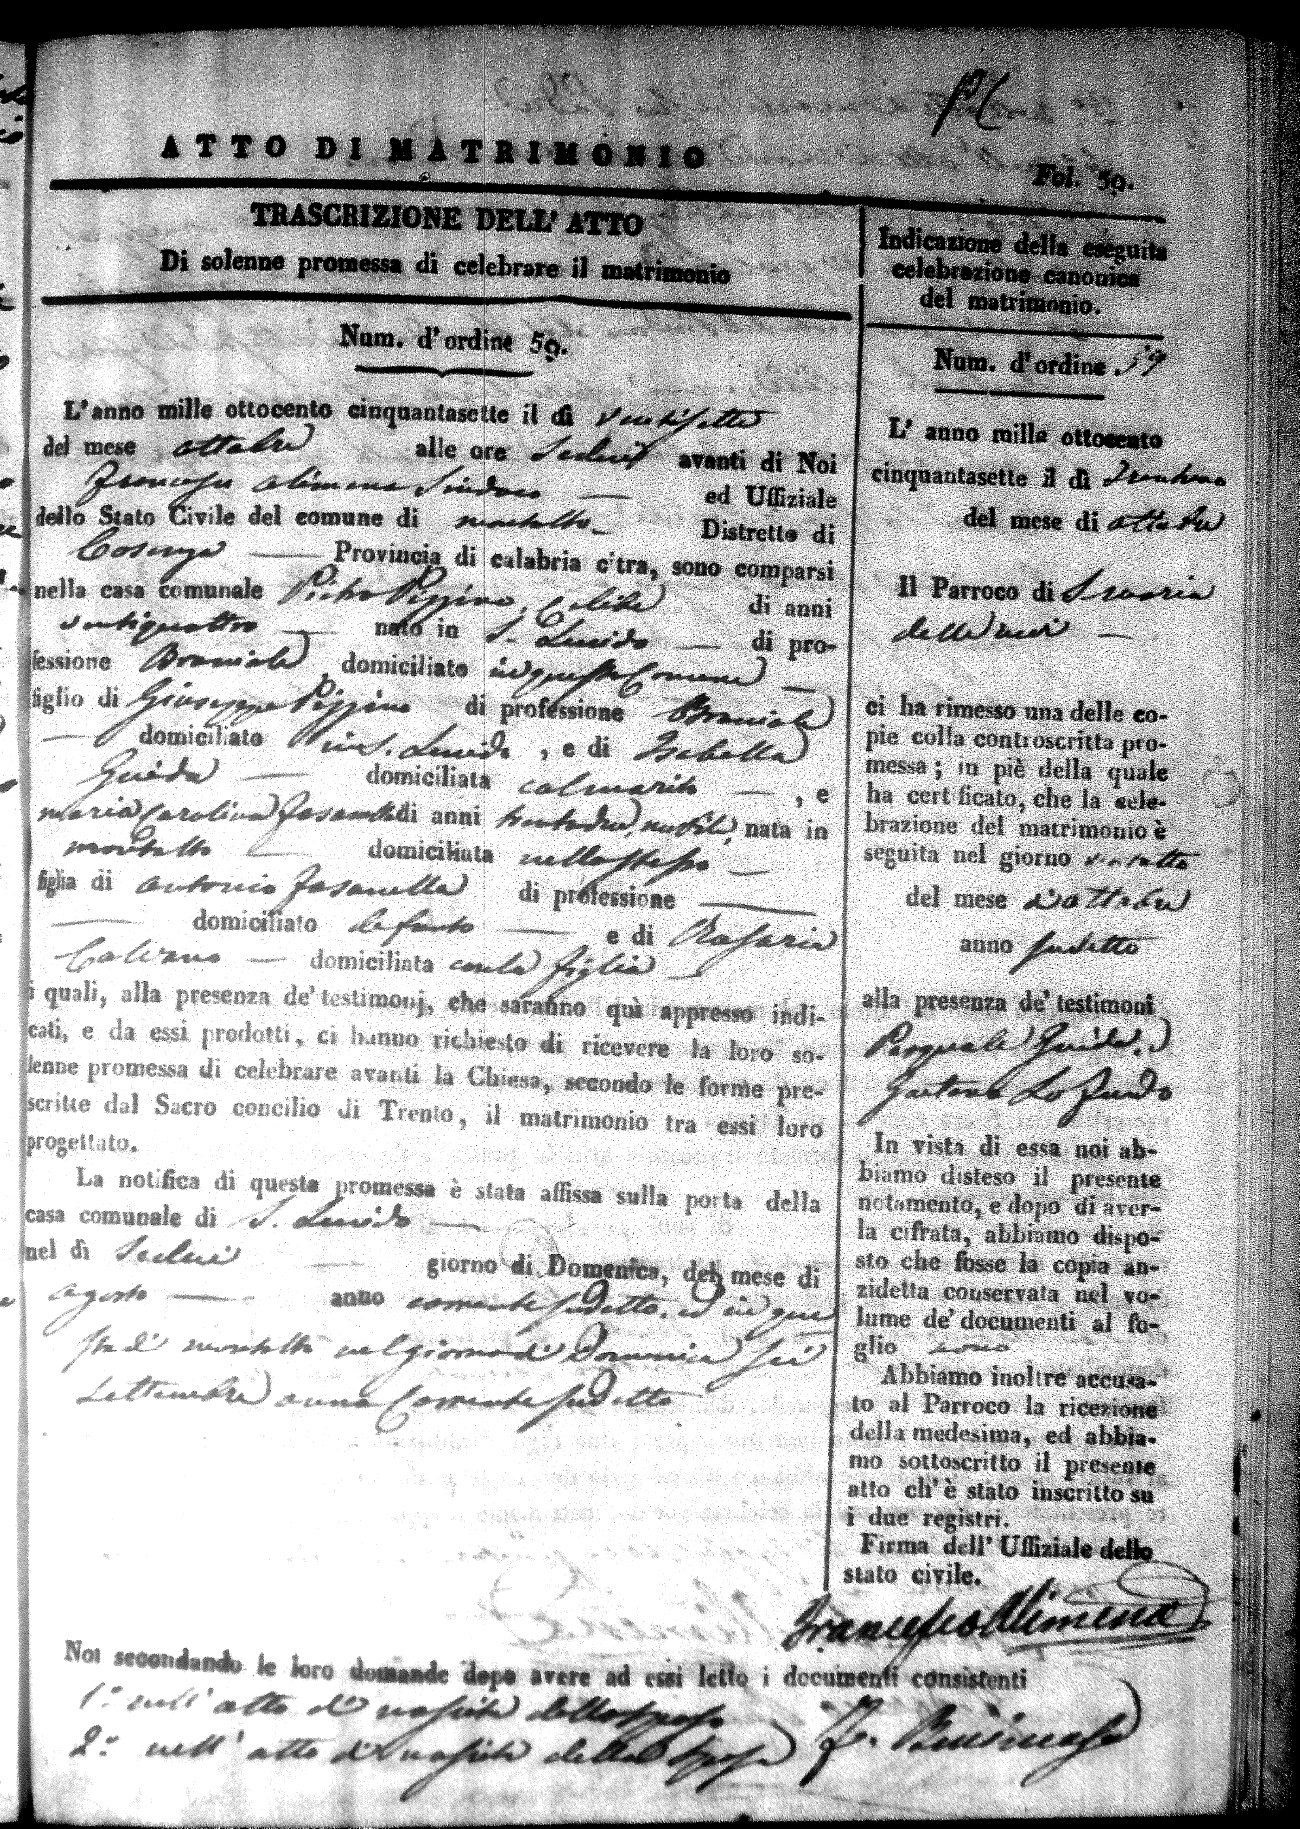 ATTO DI MATRIMONIO
Fol. 59.
TRASCRIZIONE DELL' ATTO
Di solenne promessa di celebrare il matrimonio
Num. d'ordine 59.
L'anno mille ottocento cinquantasette il dì ventisette
del mese ottobre alle ore sedici avanti di Noi
Francesco Alimena Sindaco ed Uffiziale
dello Stato Civile del comune di montalto Distretto di
Cosenza Provincia di calabria c'tra, sono comparsi
nella casa comunale Pietro Pizzino, celibe di anni
ventiquattro nato in S. Lucido di pro-
fessione Bracciale domiciliato in questo Comune
figlio di Giuseppe Pizzino di professione Bracciale
domiciliato in S. Lucido, e di Isabella
Guido domiciliata col marito, e
maria Carolina Fasanella di anni trentadue, nubile, nata in
montalto domiciliata nello stesso
figlia di antonio Fasanella di professione
domiciliato defunto e di Rosaria
Calvano domiciliata con la figlia
i quali, alla presenza de' testimonj, che saranno quì appresso indi-
cati, e da essi prodotti, ci hanno richiesto di ricevere la loro so-
lenne promessa di celebrare avanti la Chiesa, secondo le forme pre-
scritte dal Sacro concilio di Trento, il matrimonio tra essi loro
progettato.
La notifica di questa promessa è stata affissa sulla porta della
casa comunale di S. Lucido
nel dì Sedici giorno di Domenica, del mese di
agosto anno corrente sudetto, ed in que
sta di montalto nel giorno di Domenica sei
Settembre anno Corrente sudetto
Indicazione della eseguita
celebrazione canonica
del matrimonio.
Num. d'ordine 59
L' anno mille ottocento
cinquantasette il dì Trentuno
del mese di ottobre
Il Parroco di S. maria
della neve
ci ha rimesso una delle co-
pie colla controscritta pro-
messa; in piè della quale
ha cert ficato, che la cele-
brazione del matrimonio è
seguita nel giorno ventotto
del mese d'ottobre
anno sudetto
alla presenza de' testimoni
Pasquale Guido, e
Gaetano Lo Feudo
In vista di essa noi ab-
biamo disteso il presente
notamento, e dopo di aver-
la cifrata, abbiamo dispo-
sto che fosse la copia an-
zidetta conservata nel vo-
lume de' documenti al fo-
glio
Abbiamo inoltre accusa-
to al Parroco la ricezione
della medesima, ed abbia-
mo sottoscritto il presente
atto ch' è stato inscritto su
i due registri.
Firma dell' Uffiziale dello
stato civile.
Francesco Alimena
Noi secondando le loro domande dopo avere ad essi letto i documenti consistenti
1.° nell' atto di nascita dello sposo
2.° nell' atto di nascita della sposa